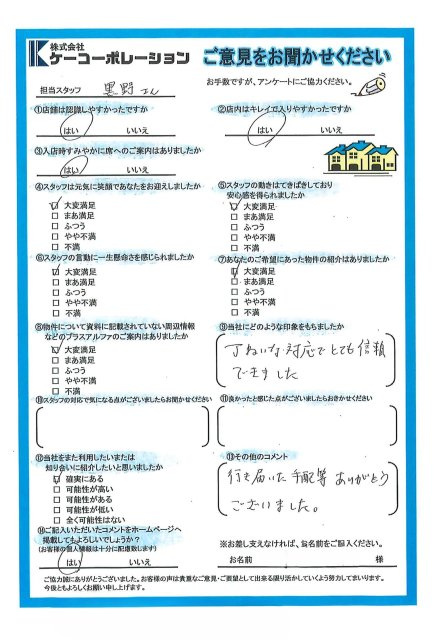 株式会社
ケーコーポレーション ご意見をお聞かせください
お手数ですが、アンケートにご協力ください。
担当スタッフ 黒野さん
①店舗は認識しやすかったですか
はい いいえ
②店内はキレイで入りやすかったですか
はい いいえ
③入店時すみやかに席へのご案内はありましたか
はい いいえ
④スタッフは元気に笑顔であなたをお迎えしましたか
大変満足
まあ満足
ふつう
やや不満
不満
⑤スタッフの動きはてきぱきしており
安心感を得られましたか
大変満足
まあ満足
ふつう
やや不満
不満
⑥スタッフの言動に一生懸命さを感じられましたか
大変満足
まあ満足
ふつう
やや不満
不満
⑦あなたのご希望にあった物件の紹介はありましたか
大変満足
まあ満足
ふつう
やや不満
不満
⑧物件について資料に記載されていない周辺情報
などのプラスアルファのご案内はありましたか
大変満足
まあ満足
ふつう
やや不満
不満
⑨当社にどのような印象をもちましたか
丁ねいな対応でとても信頼
できました
⑩スタッフの対応で気になる点がございましたらお聞かせください
⑪良かったと感じた点がございましたらおきかせください
⑫当社をまた利用したいまたは
知り合いに紹介したいと思いましたか
確実にある
可能性が高い
可能性がある
可能性が低い
全く可能性はない
⑬その他のコメント
行き届いた手配等ありがとう
ございました。
⑭ご記入いただいたコメントをホームページへ
掲載してもよろしいでしょうか?
(お客様の個人情報は十分に配慮致します)
はい いいえ
※お差し支えなければ、お名前をご記入ください。
お名前 様
ご協力誠にありがとうございました。お客様の声は貴重なご意見・ご要望として出来る限り活かしていくよう努力してまいります。
今後ともよろしくお願い申し上げます。